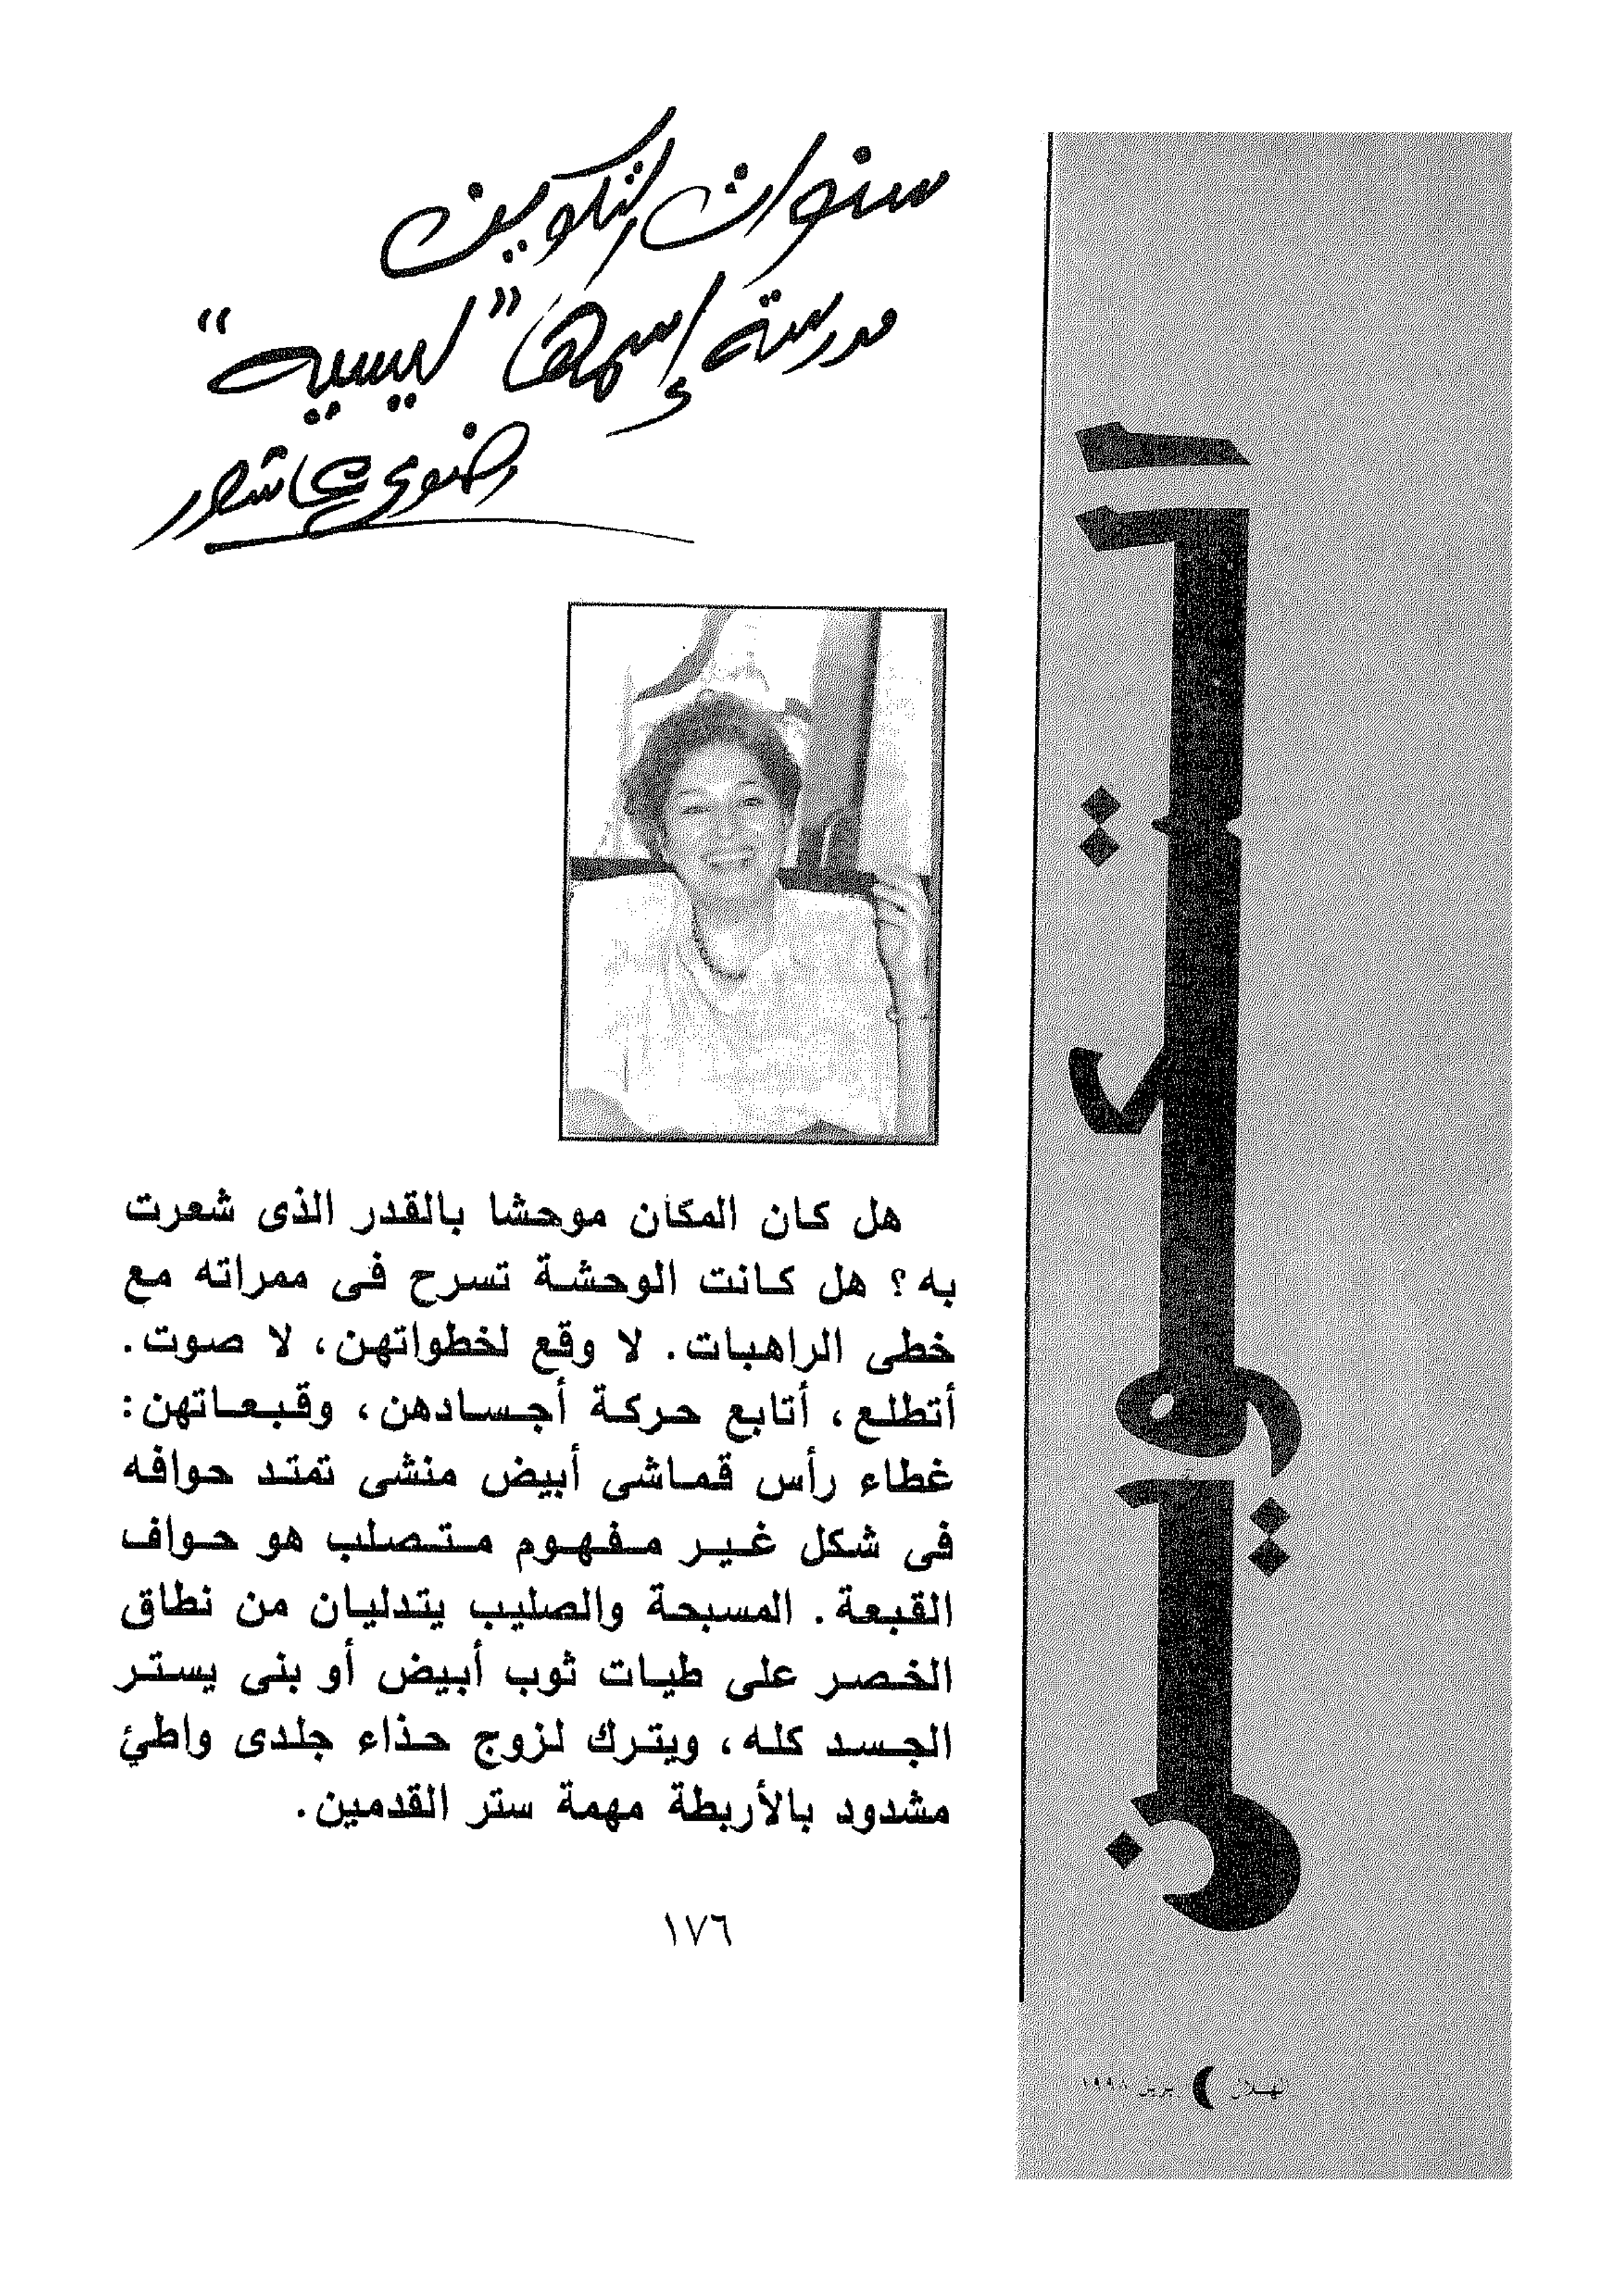 سنوات التكوين
مدرسة إسمها "ليسيه"
رضوى عاشور
التكوين
هل كان المكان موحشا بالقدر الذى شعرت
به؟ هل كانت الوحشة تسرح فى ممراته مع
خطى الراهبات. لا وقع لخطواتهن، لا صوت.
أتطلع، أتابع حركة أجسادهن، وقبعاتهن:
غطاء رأس قماشى أبيض منشى تمتد حوافه
فى شكل غير مفهوم متصلب هو حواف
القبعة. المسبحة والصليب يتدليان من نطاق
الخصر على طيات ثوب أبيض أو بنى يستر
الجسد كله، ويترك لزوج حذاء جلدى واطئ
مشدود بالأربطة مهمة ستر القدمين.
١٧٦
الهلال أبريل ١٩٩٨